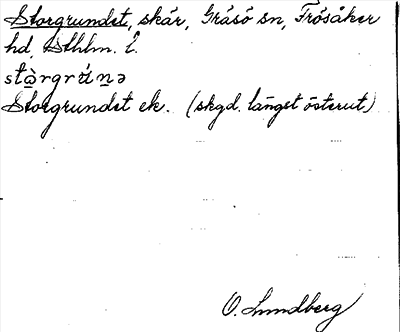 Storgrundet, skär, Gräsö sn, Frösåker
hd, Sthlm. l.
stàrgrúnə
Storgrundet ek. (skgd. längst österut)
O. Lundberg